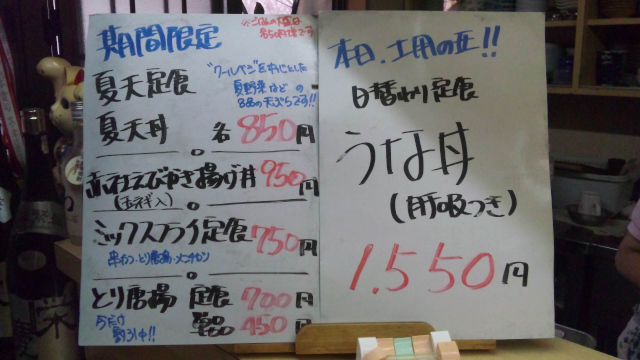 期間限定
※ごはんの大盛は
夏天定食
"クールベジ"をオにとした
夏野菜などの
8品の天ぷらです!!
夏天丼 各850円
赤社えびかき揚げ丼 950円
(玉ネギ入)
ミックスフライ定食 750円
串カツ・とり唐揚・メンチカツ
とり唐揚 定食 700円
単品 450円
今だけ
割引中!!
本日、土用の丑!!
日替わり定食
うな丼
(肝吸つき)
1.550円